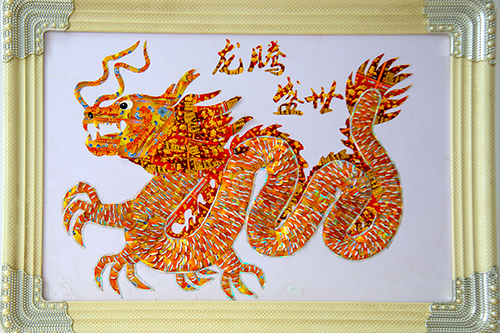 龙腾
盛世